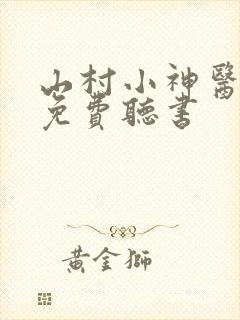 山村小神醫
免費聽書
黃金獅